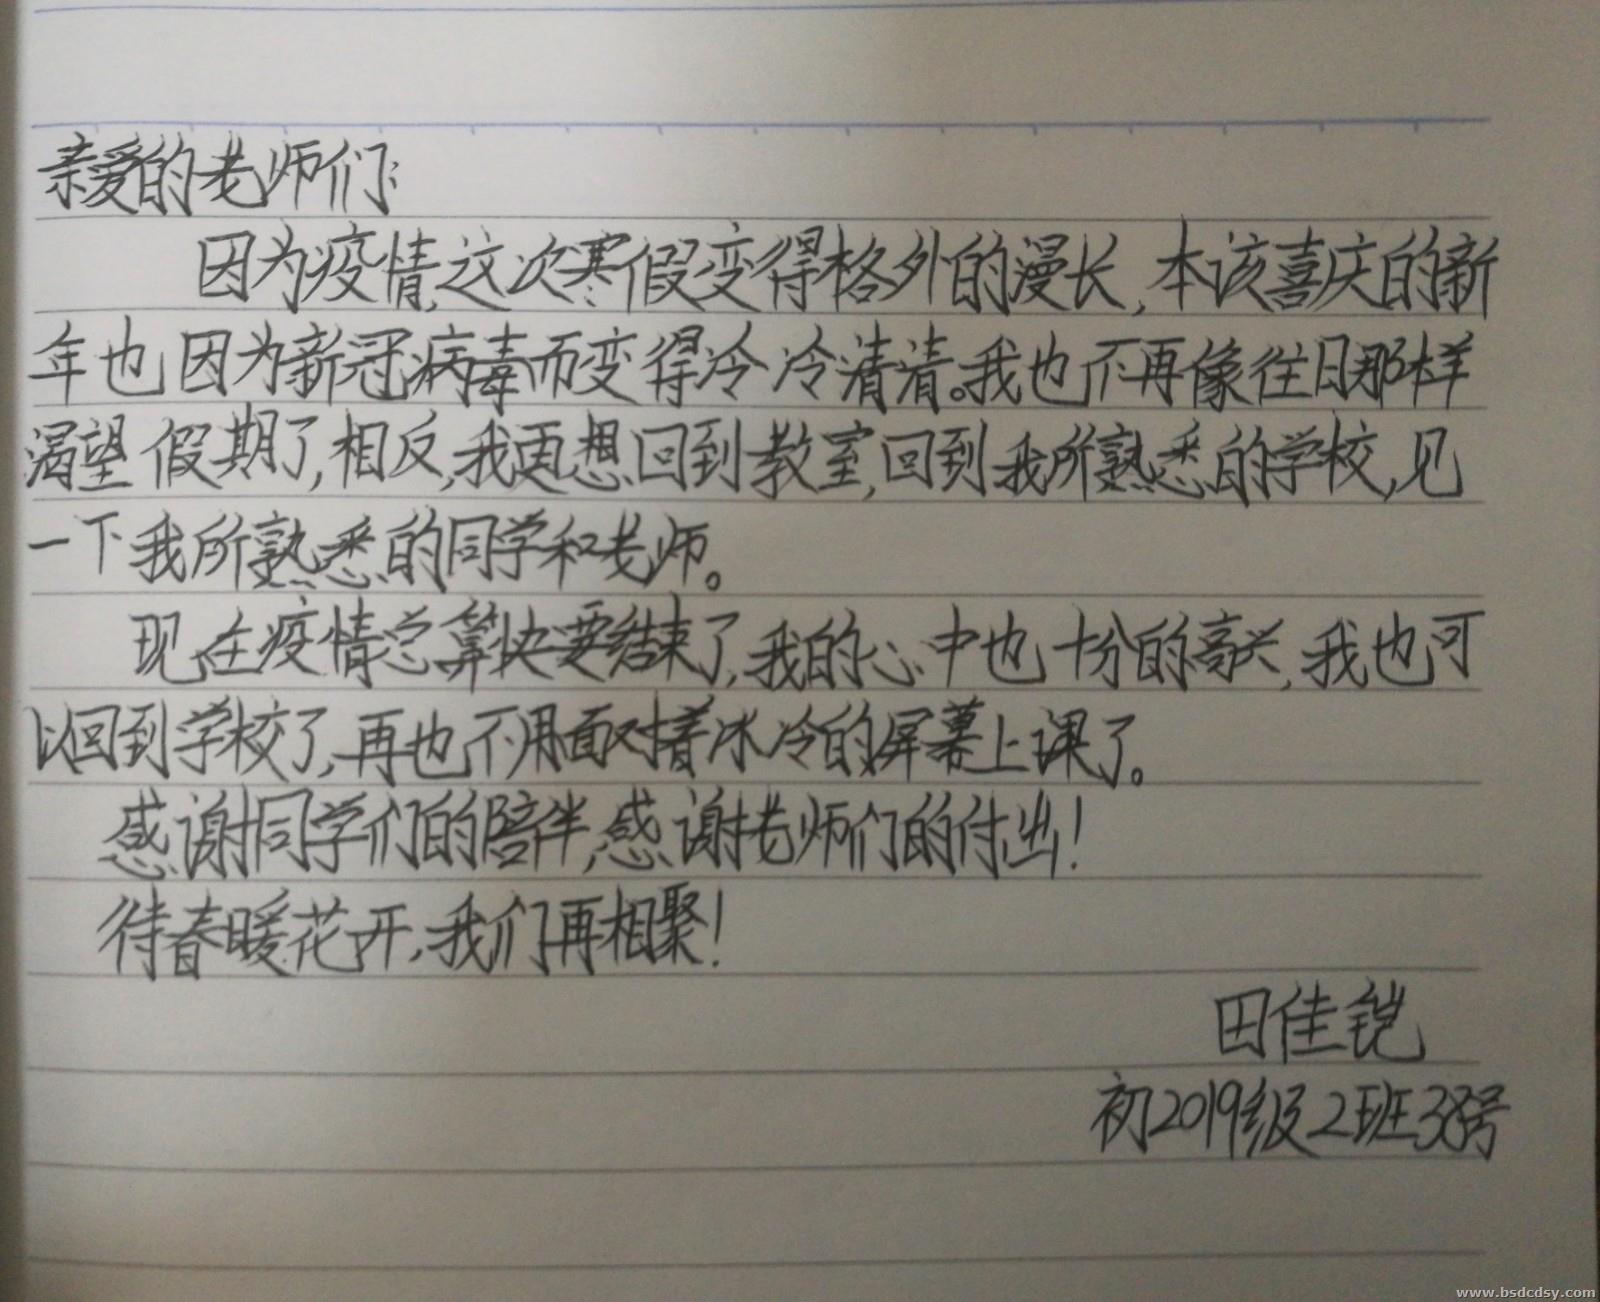 亲爱的老师们:
因为疫情,这次寒假变得格外的漫长,本该喜庆的新
年也因为新冠病毒而变得冷冷清清。我也不再像往日那样
渴望假期了,相反,我更想回到教室,回到我所熟悉的学校,见
一下我所熟悉的同学和老师。
现在疫情总算快要结束了,我的心中也十分的高兴,我也可
以回到学校了,再也不用面对着冰冷的屏幕上课了。
感谢同学们的陪伴,感谢老师们的付出!
待春暖花开,我们再相聚!
田佳铠
初2019级2班38号
www.bsdcdsy.com